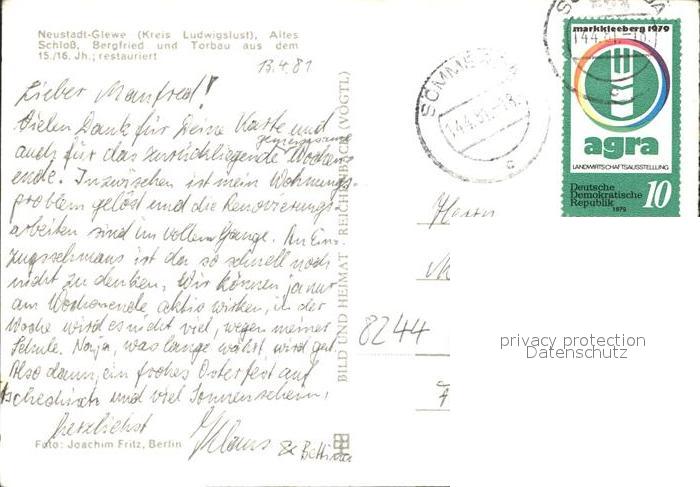 Neustadt-Glewe (Kreis Ludwigslust), Altes
Schloß, Bergfried und Torbau aus dem
15./16. Jh.; restauriert
13.4.81
Lieber Manfred!
Vielen Dank für Deine Karte und
auch für das zurückliegende gemeinsame Wochen-
ende. Inzwischen ist mein Wohnungs-
problem gelöst und die Renovierungs-
arbeiten sind im vollem Gange. An Ein-
zugsschmaus ist da so schnell noch
nicht zu denken. Wir können ja nur
am Wochenende aktiv wirken, in der
Woche wird es nicht viel, wegen meiner
Schule. Naja, was lange währt, wird gut.
Also dann, ein frohes Osterfest auf
tschechisch und viel Sonnenschein,
herzlichst
Klaus & Bettina
Foto: Joachim Fritz, Berlin
BILD UND HEIMAT REICHENBACH (VOGTL)
SÖMMERDA
14.4.81.-18
SÖMMERDA
14.4.81.-18
markkleeberg 1979
agra
LANDWIRTSCHAFTSAUSSTELLUNG
Deutsche
Demokratische
Republik 10
1979
Herrn
M
8244
privacy protection
Datenschutz